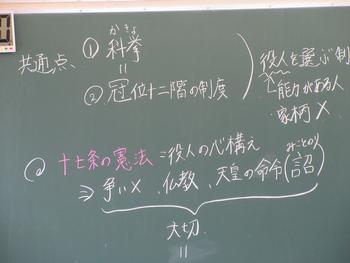 共通点
① 科挙
かきょ
=
② 冠位十二階の制度
役人を選ぶ制
能力がある人
家柄 ×
◎ 十七条の憲法=役人の心構え
みことのり
⇒ 争い×、仏教、天皇の命令(詔)
大切
=